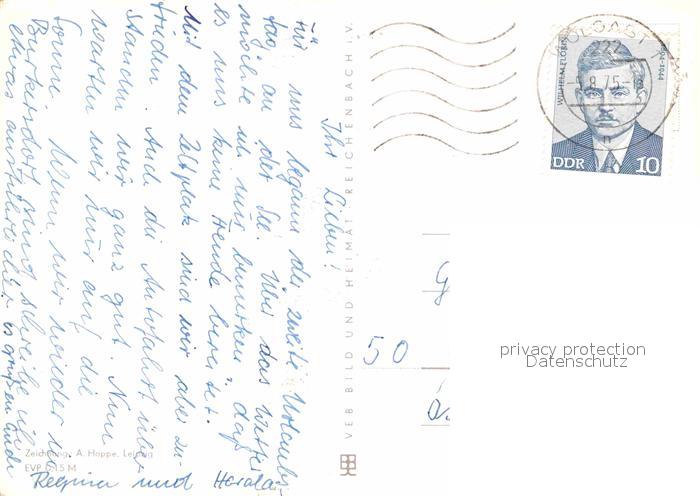 Ihr Lieben!
Für uns begann der zweite Urlaubs-
tag an der See. Über das Wetter
möchte ich nur bemerken, daß
es uns keine Freude bereitet.
Mit dem Zeltplatz sind wir aber zu-
frieden. Auch die Autofahrt über-
standen wir ganz gut. Nun
warten wir nur auf die
Sonne. Wenn wir wieder in
Burkersdorf sind schreibe ich
etwas ausführlicher. Es grüßen Euch
Regina und Harald
Zeichnung: A. Hoppe, Leipzig
EVP 0,15 M
VEB BILD UND HEIMAT REICHENBACH I. V.
WOLGAST 1
222
-5.8.75-
n
WILHELM FLORIN
1894-1944
DDR 10
G
50
privacy protection
Datenschutz